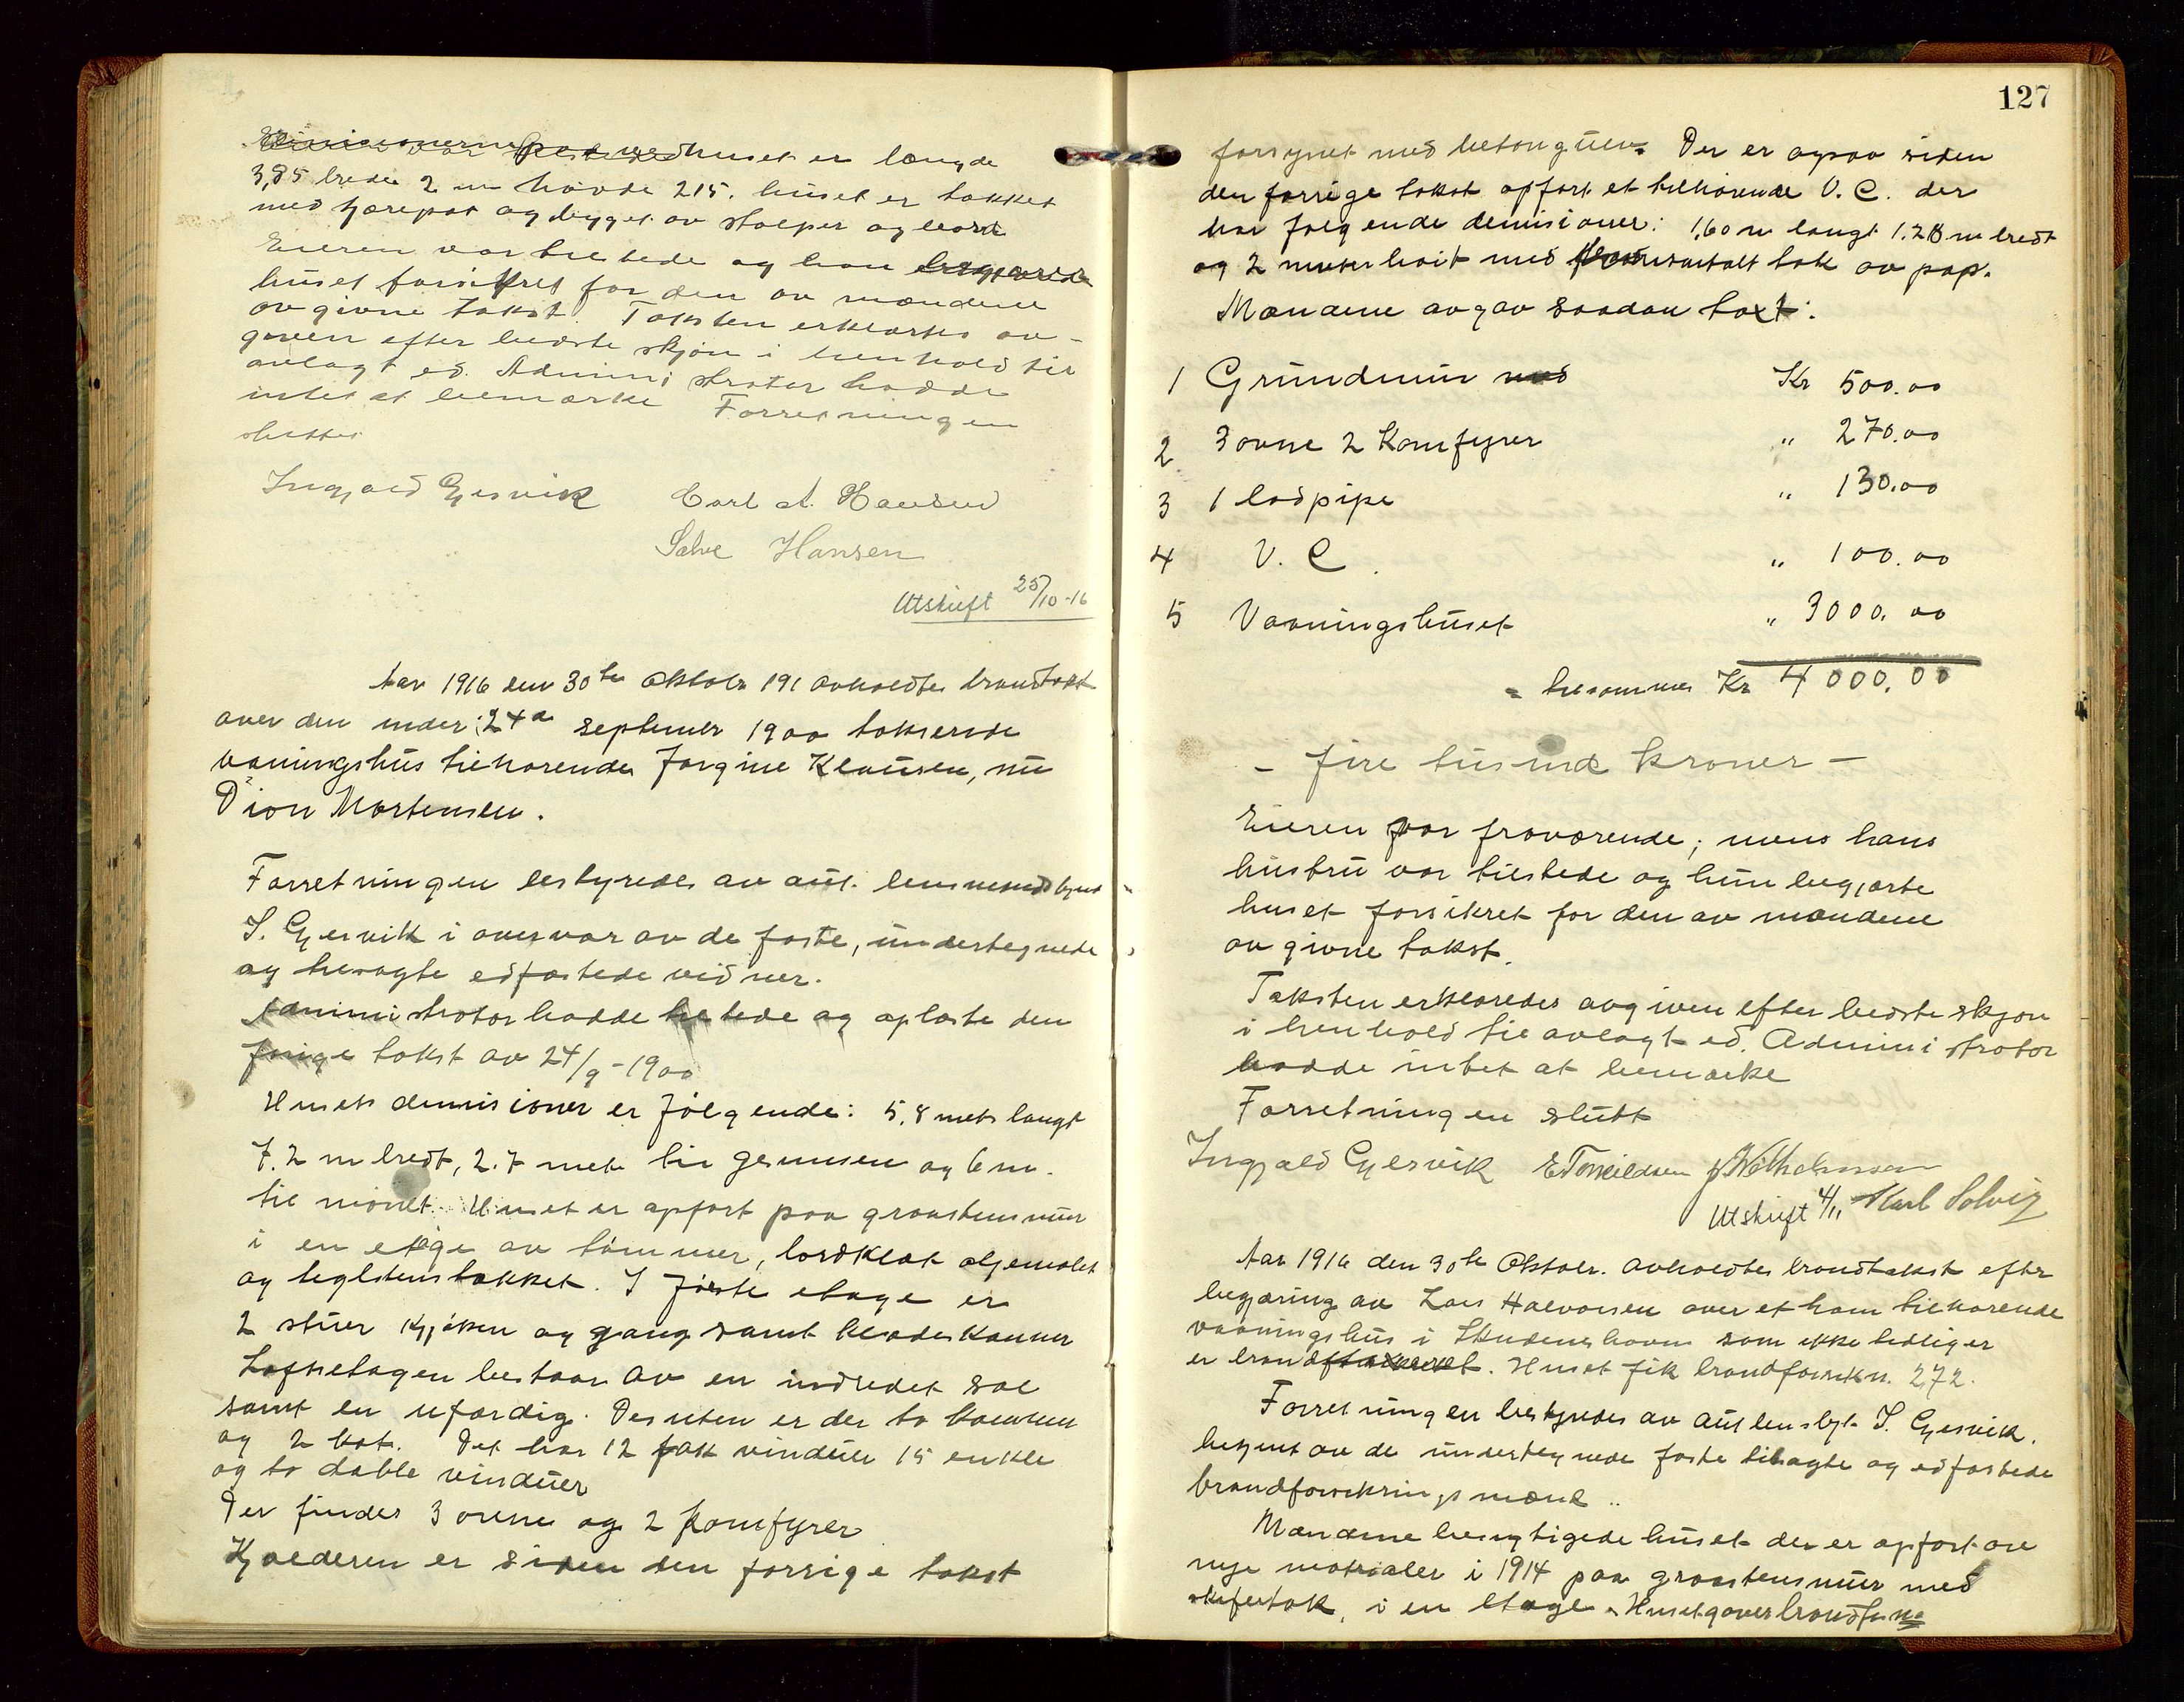 vedhuset er længde
3,85 brede 2 m høide 215. huset er tækket
med tjærepap og bygget av stolper og bord
Eieren var tilstede og han begjærede
huset forsikret for den av mændene
avgivne takst. Taksten erklærtes av-
given efter bedste skjøn i henhold til
avlagt ed. Administrator hadde
intet at bemærke Forretningen
sluttes
Ingjald Gjesvik Carl A. Hansen
Salve Hansen
Utskrift 25/10-16
Aar 1916 den 30te Oktobr 191 avholdtes brandtakst
over den under 24de september 1900 takserede
vaaningshus tilhørende Jørgine Klausen, nu
Dion Mortensen.
Forretningen bestyredes av aut. lensmandsbynt
I. Gjesvik i overvær av de faste, undertegnede
og tilsagte edfæstede vidner.
Administrator hadde tilstede og oplæste den
forrige takst av 24/9-1900
Husets demisioner er følgende: 5,8 metr langt
7.2 m bredt, 2.7 metr til gesimsen og 6 m.
til mønet. Huset er opført paa graastensmur
i en etage av tømmer, bordklæt oljemalet
og teglstenstækket. I første etage er
2 stuer kjøken og gang samt klædeskammer
Loftsetagen bestaar av en indredet sal
samt en ufærdig. Desuten er der to kammer
og 2 kot. Det har 12 fak vinduer 15 enkle
og to doble vinduer
Der findes 3 ovne og 2 komfyrer
Kjælderen er siden den forrige takst
127
forsynet med betongulv. Der er ogsaa siden
den forrige takst opført et tilhørende V. C. der
har følgende demisioner: 1,60 m langt 1.28 m bredt
og 2 meter høit med tak av pap.
Mændene avgav saadan taxt:
1 Grundmur med Kr 500.00
2 3 ovne 2 Komfyrer " 270.00
3 1 ladpipe " 130.00
4 V. C. " 100.00
5 Vaaningshuset " 3000.00
= tilsammen Kr 4000.00
- fire tusind kroner -
Eieren var fraværende; mens hans
hustru var tilstede og hun begjærte
huset forsikret for den av mændene
avgivne takst.
Taksten erklæredes avgiven efter bedste skjøn
i henhold til avlagt ed. Administrator
hadde intet at bemærke
Forretningen slutt
Ingjald Gjesvik E Torkildsen J Wilhelmsen
Utskrift 4/11 Karl Solvig
Aar 1916 den 30te Oktobr. avholdtes brandtakst efter
begjæring av Lars Halvorsen over et ham tilhørende
vaaningshus i Skudeneshavn som ikke tidliger
er brandtakseret. Huset fik brandforsikn. 272.
Forretningen bestyredes av aut lensbyt I. Gjesvik.
betjent av de undertegnede faste tilsagte og edfæstede
brandforsikringsmænd..
Mændene besigtigede huset der er opført av
nye matrialer i 1914 paa graastensmur med
skifertak, i en etage. Huset gaves brandfor. no